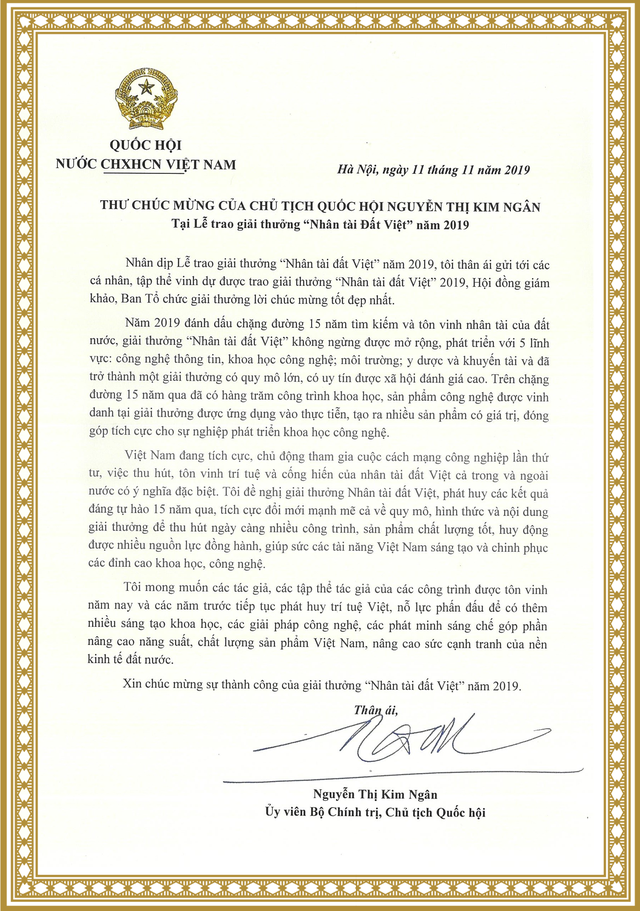 QUỐC HỘI
NƯỚC CHXHCN VIỆT NAM
Hà Nội, ngày 11 tháng 11 năm 2019
THƯ CHÚC MỪNG CỦA CHỦ TỊCH QUỐC HỘI NGUYỄN THỊ KIM NGÂN
Tại Lễ trao giải thưởng “Nhân tài Đất Việt” năm 2019
Nhân dịp Lễ trao giải thưởng “Nhân tài đất Việt” năm 2019, tôi thân ái gửi tới các
cá nhân, tập thể vinh dự được trao giải thưởng “Nhân tài đất Việt” 2019, Hội đồng giám
khảo, Ban Tổ chức giải thưởng lời chúc mừng tốt đẹp nhất.
Năm 2019 đánh dấu chặng đường 15 năm tìm kiếm và tôn vinh nhân tài của đất
nước, giải thưởng “Nhân tài đất Việt” không ngừng được mở rộng, phát triển với 5 lĩnh
vực: công nghệ thông tin, khoa học công nghệ; môi trường; y dược và khuyến tài và đã
trở thành một giải thưởng có quy mô lớn, có uy tín được xã hội đánh giá cao. Trên chặng
đường 15 năm qua đã có hàng trăm công trình khoa học, sản phẩm công nghệ được vinh
danh tại giải thưởng được ứng dụng vào thực tiễn, tạo ra nhiều sản phẩm có giá trị, đóng
góp tích cực cho sự nghiệp phát triển khoa học công nghệ.
Việt Nam đang tích cực, chủ động tham gia cuộc cách mạng công nghiệp lần thứ
tư, việc thu hút, tôn vinh trí tuệ và cống hiến của nhân tài đất Việt cả trong và ngoài
nước có ý nghĩa đặc biệt. Tôi đề nghị giải thưởng Nhân tài đất Việt, phát huy các kết quả
đáng tự hào 15 năm qua, tích cực đổi mới mạnh mẽ cả về quy mô, hình thức và nội dung
giải thưởng để thu hút ngày càng nhiều công trình, sản phẩm chất lượng tốt, huy động
được nhiều nguồn lực đồng hành, giúp sức các tài năng Việt Nam sáng tạo và chinh phục
các đỉnh cao khoa học, công nghệ.
Tôi mong muốn các tác giả, các tập thể tác giả của các công trình được tôn vinh
năm nay và các năm trước tiếp tục phát huy trí tuệ Việt, nỗ lực phấn đấu để có thêm
nhiều sáng tạo khoa học, các giải pháp công nghệ, các phát minh sáng chế góp phần
nâng cao năng suất, chất lượng sản phẩm Việt Nam, nâng cao sức cạnh tranh của nền
kinh tế đất nước.
Xin chúc mừng sự thành công của giải thưởng “Nhân tài đất Việt” năm 2019.
Thân ái,
Nguyễn Thị Kim Ngân
Ủy viên Bộ Chính trị, Chủ tịch Quốc hội